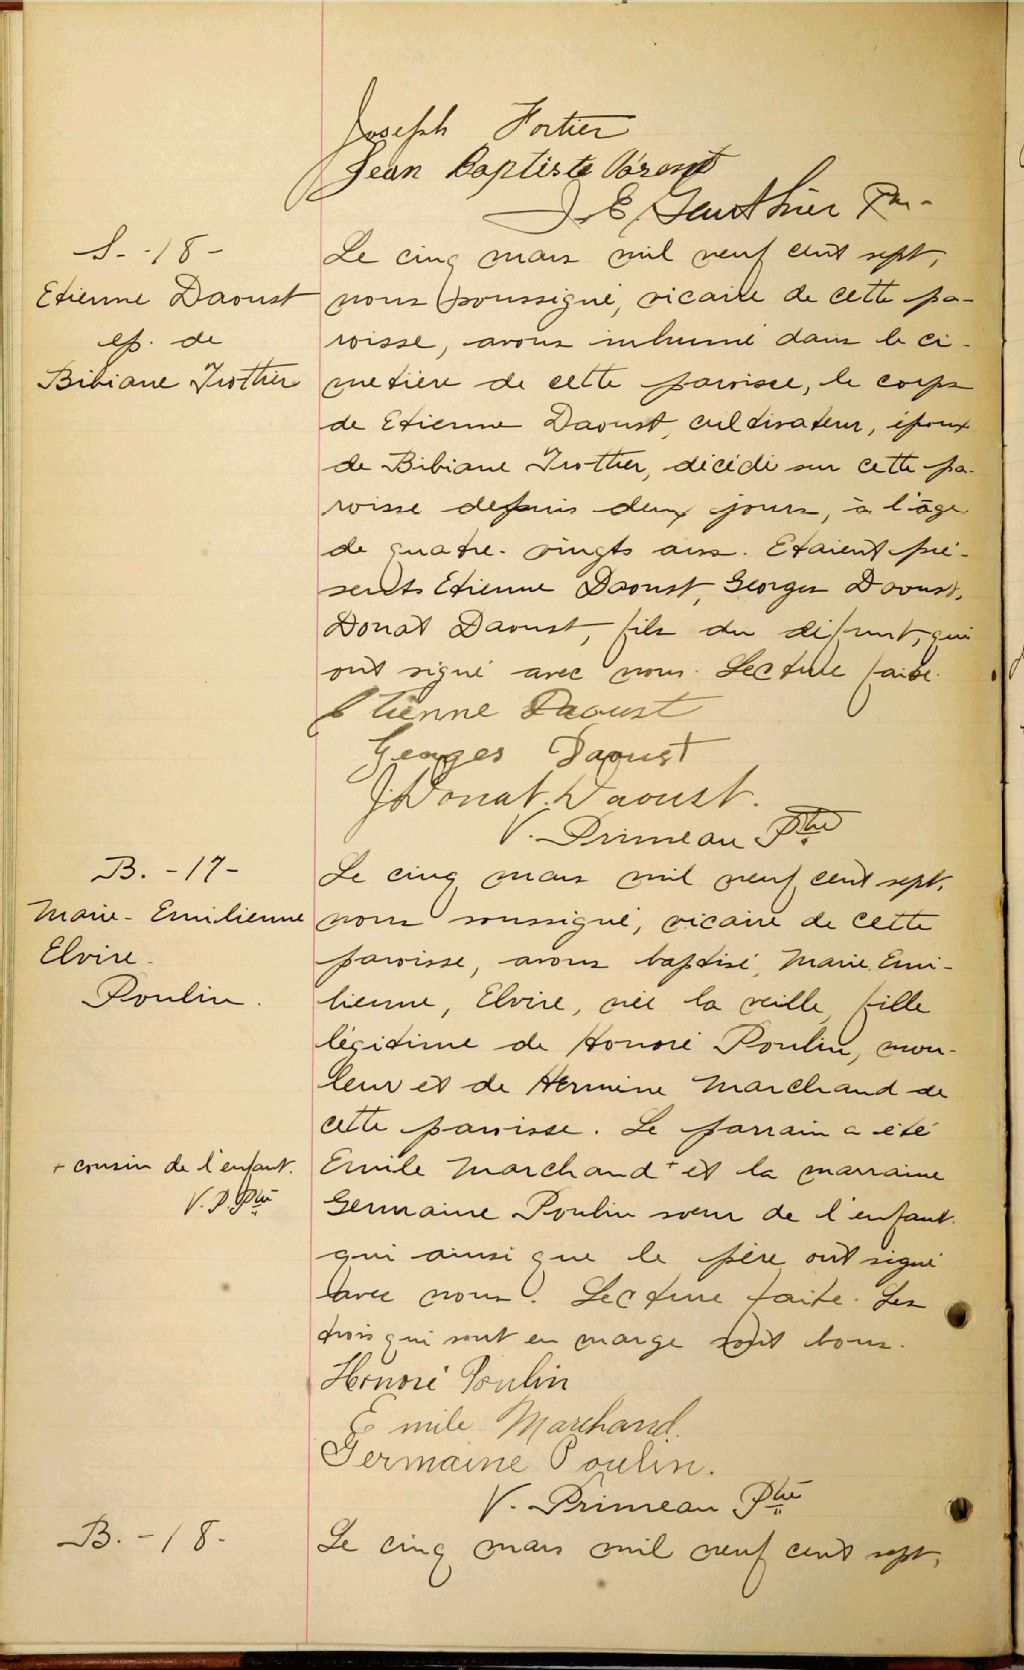 Joseph Fortier
Jean Baptiste
J. E. Gauthier Ptre
S. - 18 -
Etienne Daoust
ep. de
Bibiane Trottier
Le cinq mars mil neuf cent sept,
nous soussigné, vicaire de cette pa-
roisse, avons inhumé dans le ci-
metière de cette paroisse, le corps
de Etienne Daoust, cultivateur, époux
de Bibiane Trottier, décédé sur cette pa-
roisse depuis deux jours, à l'âge
de quatre-vingts ans. Etaient pré-
sents Etienne Daoust, Georges Daoust,
Donat Daoust, fils du défunt, qui
ont signé avec nous. Lecture faite.
Etienne Daoust
Georges Daoust
J. Donat. Daoust.
V. Primeau Ptre
B. - 17 -
Marie-Emilienne
Elvire.
Poulin.
Le cinq mars mil neuf cent sept,
nous soussigné, vicaire de cette
paroisse, avons baptisé, Marie, Emi-
lienne, Elvire, née la veille, fille
légitime de Honoré Poulin, mou-
leur et de Hermine Marchand de
cette paroisse. Le parrain a été
Emile Marchand + et la marraine
Germaine Poulin sœur de l'enfant.
qui ainsi que le père ont signé
avec nous. Lecture faite. Les
trois qui sont en marge sont bons.
+ cousin de l'enfant.
V. P. Ptre
Honoré Poulin
Emile Marchand.
Germaine Poulin.
V. Primeau Ptre
B. - 18 -
Le cinq mars mil neuf cent sept,